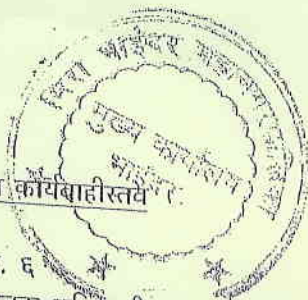 मिरा भाईंदर महानगरपालिका
मुख्य कार्यालय
भाईंदर.
कार्यवाहीस्तव
. ६